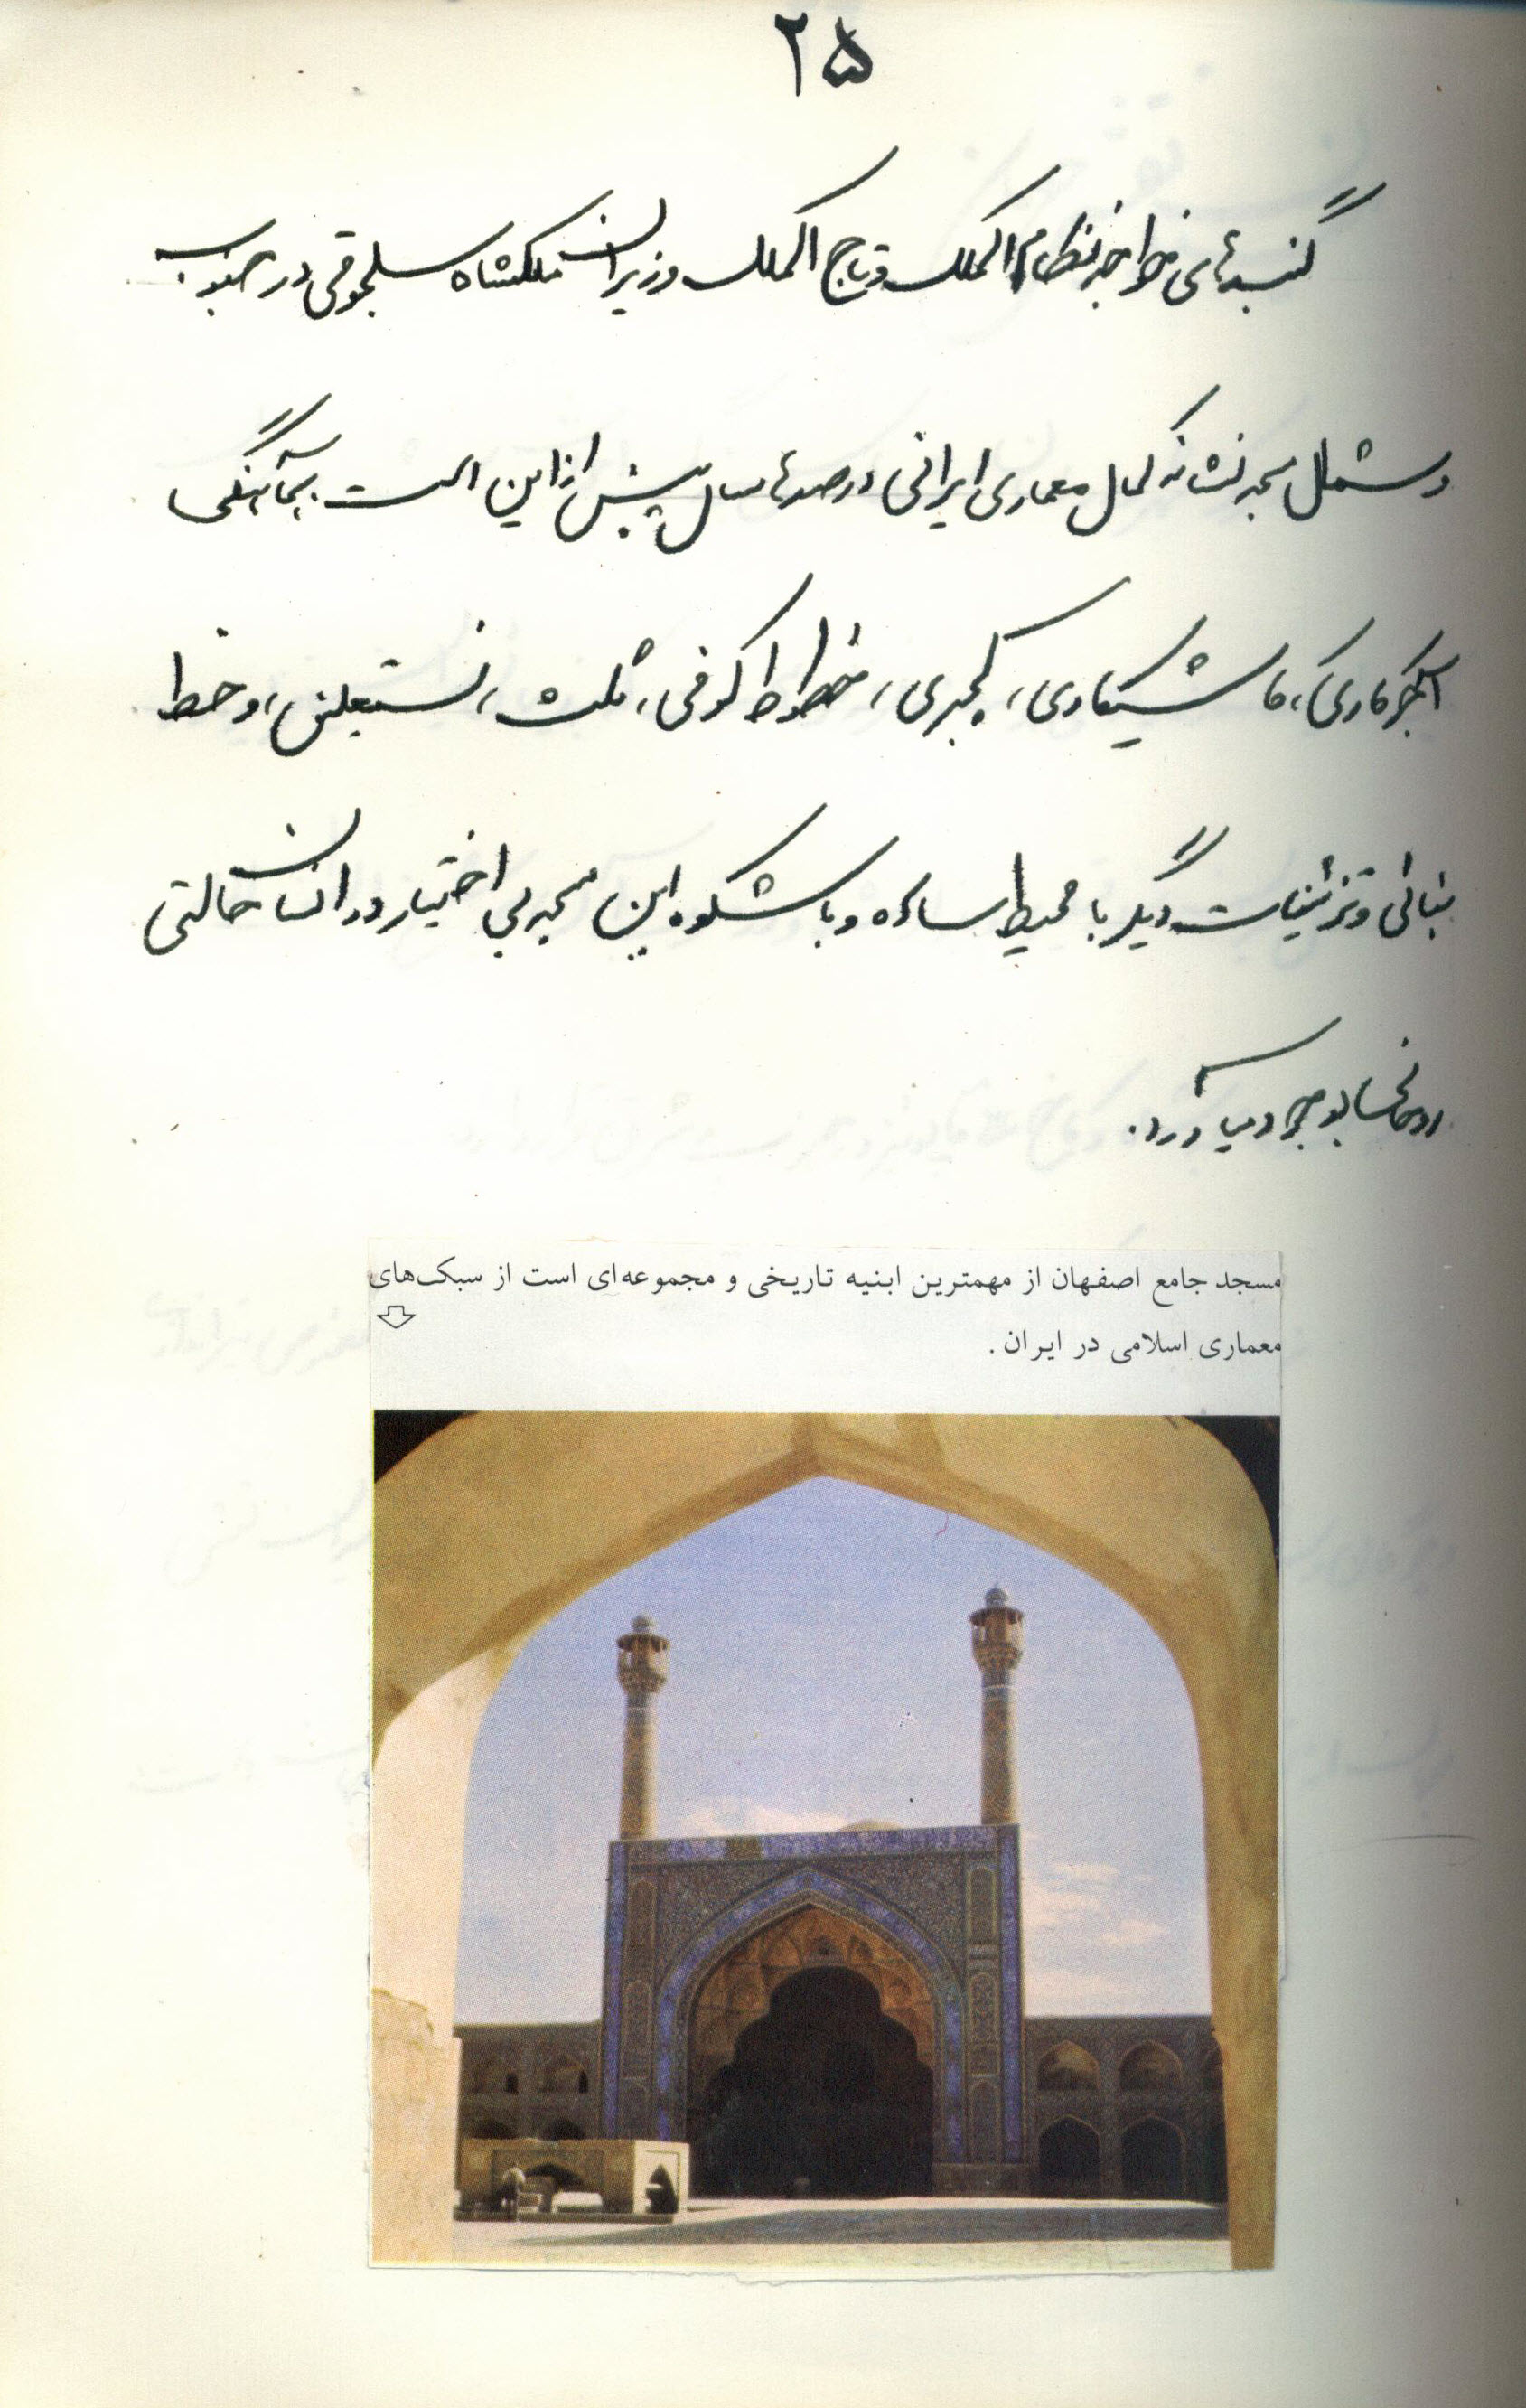 ۲۵
گنبدهای خواجه نظام الملک و تاج الملک وزیران ملکشاه سلجوقی در جنوب
و شمال مسجد نشانه کمال معماری ایرانی در صدها سال پیش از این است. هماهنگی
آجرکاری، کاشیکاری، گچبری، خطوط کوفی، ثلث، نستعلیق، و خط
بنائی و تزئینات دیگر با محیط ساده و باشکوه این مسجد بی اختیار در انسان حالتی
روحانی بوجود میآورد.
مسجد جامع اصفهان از مهمترین ابنیه تاریخی و مجموعه‌ای است از سبک‌های
معماری اسلامی در ایران .